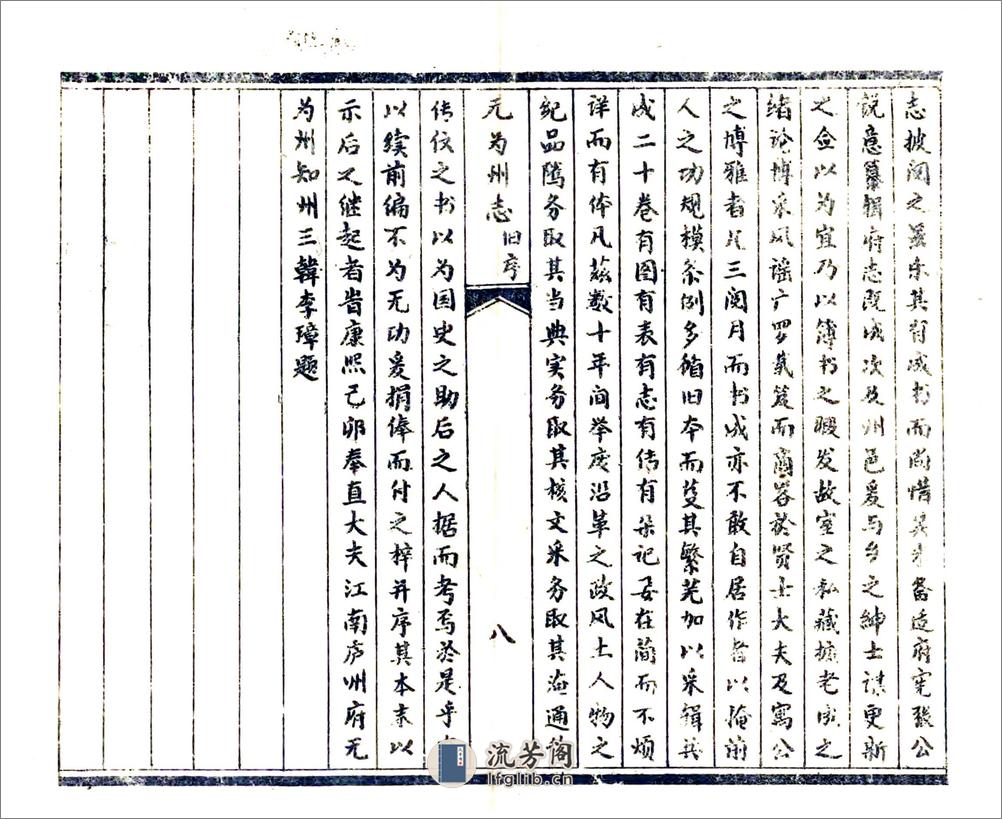 志披阅之虽乐其有成书而尚惜其未备适府宪张公
说意纂辑府志既成次及州邑爰与乡之绅士谋更新
之佥以为宜乃以簿书之暇发故室之私藏摭老成之
绪论博采风谣广罗载笈而商容於贤士大夫及寓公
之博雅者凡三阅月而书成亦不敢自居作者以掩前
人之功规模条例多循旧本而芟其繁芜加以采辑共
成二十卷有图有表有志有传有杂记要在简而不烦
详而有体凡兹数十年间举废沿革之政风土人物之
纪品骘务取其当典实务取其核文采务取其海通
无为州志旧序
八
传信之书以为国史之助后之人据而考焉於是乎
以续前编不为无功爰捐俸而付之梓并序其本末以
示后之继起者岂康熙己卯奉直大夫江南庐州府无
为州知州三韩李璋题
流芳阁
lfglib.cn